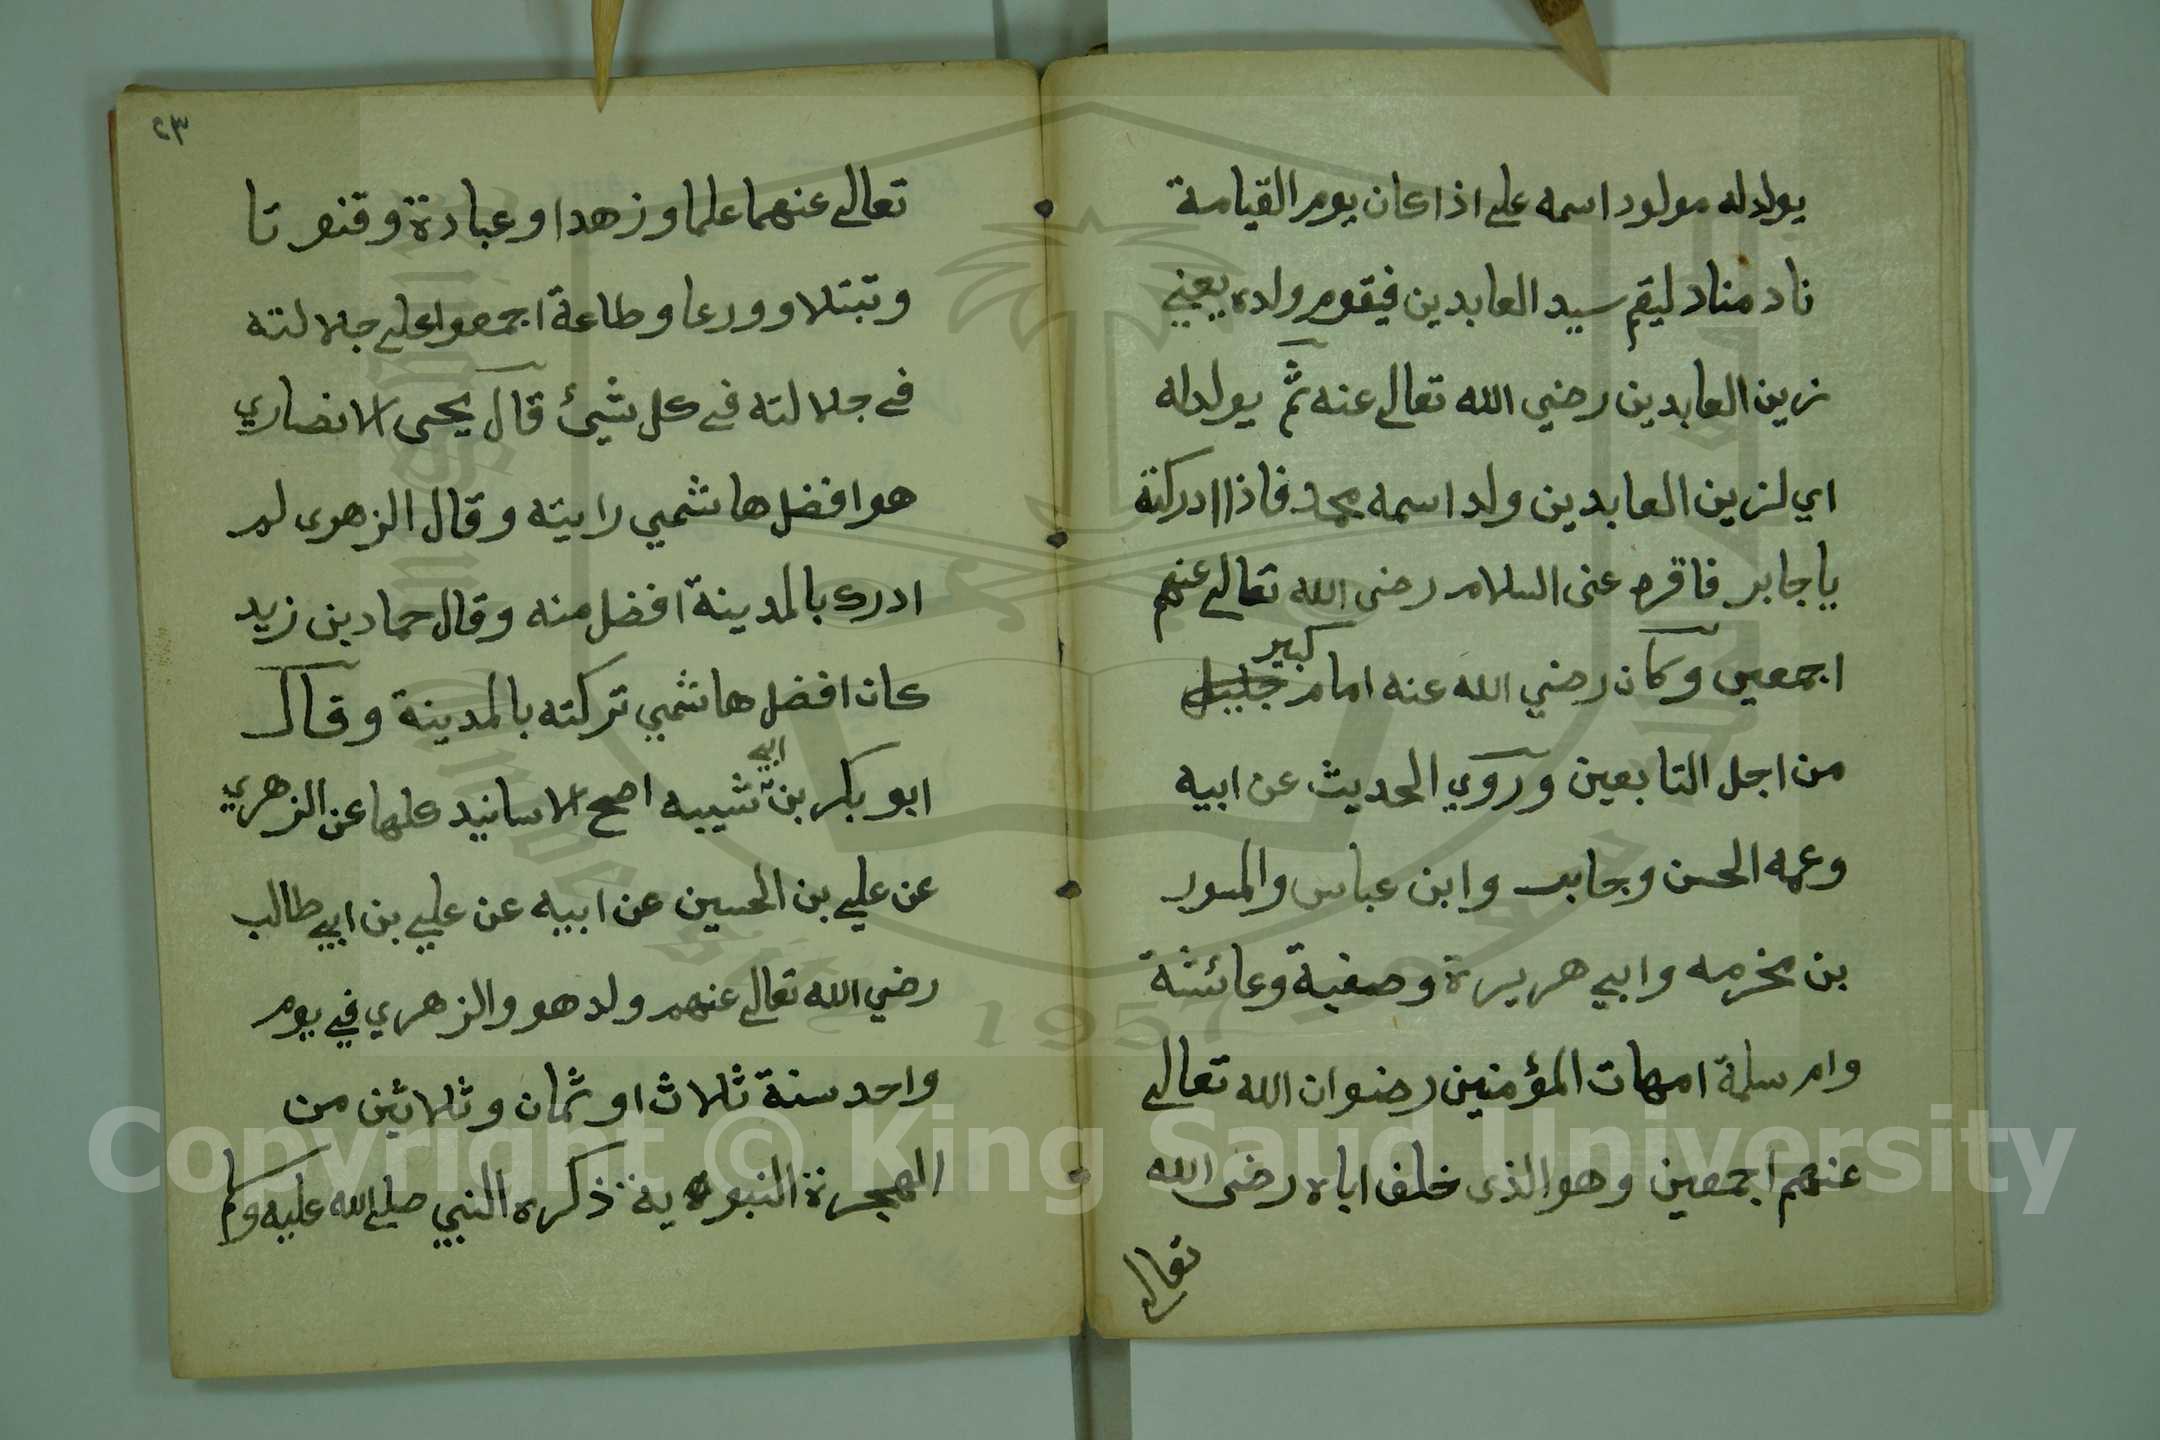 يولد له مولود اسمه علي اذا كان يوم القيامة
ناد مناد ليقم سيد العابدين فيقوم ولده يعني
زين العابدين رضي الله تعالى عنه ثم يولد له
اي لزين العابدين ولد اسمه محمد فاذا ادركته
يا جابر فاقره عنى السلام رضى الله تعالى عنهم
اجمعين وكان رضي الله عنه امام جليل كبير
من اجل التابعين وروي الحديث عن ابيه
وعمه الحسن وجابر وابن عباس والمسور
بن مخرمه وابي هريرة وصفية وعائشة
وام سلمة امهات المؤمنين رضوان الله تعالى
عنهم اجمعين وهو الذى خلف اباه رضى الله
تعالى
٢٣
تعالى عنهما علما وزهدا وعبادة وقنوتا
وتبتلا وورعا وطاعة اجمعوا على جلالته
في جلالته في كل شيئ قال يحيى الانصاري
هو افضل هاشمي رايته وقال الزهرى لم
ادرك بالمدينة افضل منه وقال حماد بن زيد
كان افضل هاشمي تركته بالمدينة وقال
ابو بكر بن ابي شيبه اصح الاسانيد كلها عن الزهري
عن علي بن الحسين عن ابيه عن علي بن ابي طالب
رضي الله تعالى عنهم ولد هو والزهري في يوم
واحد سنة ثلاث او ثمان وثلاثين من
الهجرة النبوية ذكره النبي صلى الله عليه وكا
Copyright © King Saud University
1957